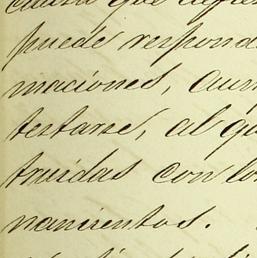 puede respond
maciones, aun
testarse, al qu
truidas con lo
nancientos.